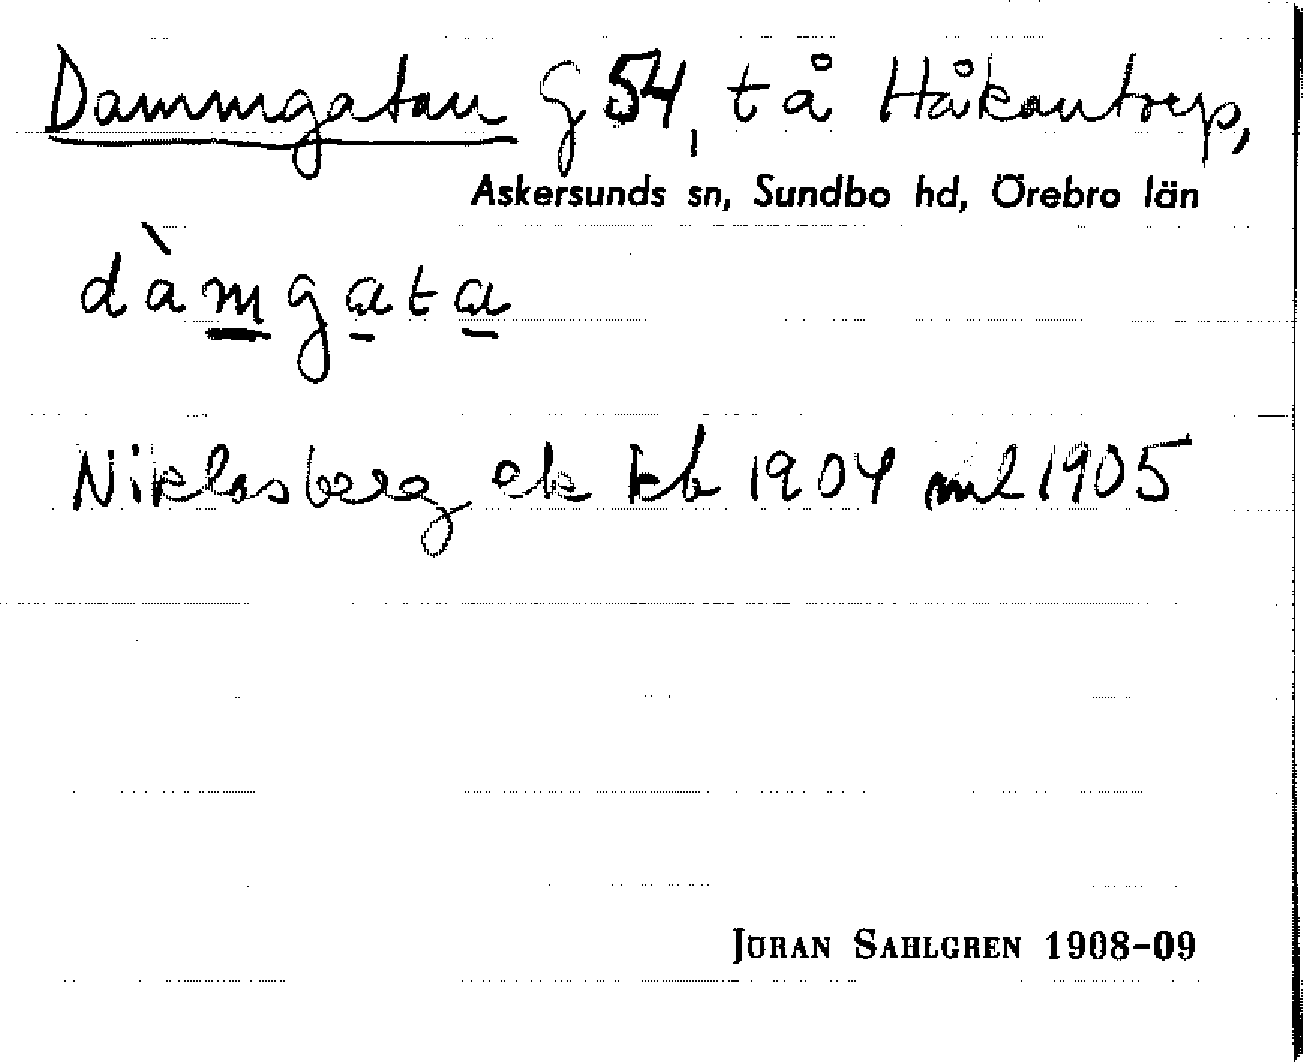 Dammgatan G 54, t å Håkantorp,
Askersunds sn, Sundbo hd, Örebro län
dàmgata
Niklasberg ek kb 1904 ml 1905
Jöran Sahlgren 1908-09